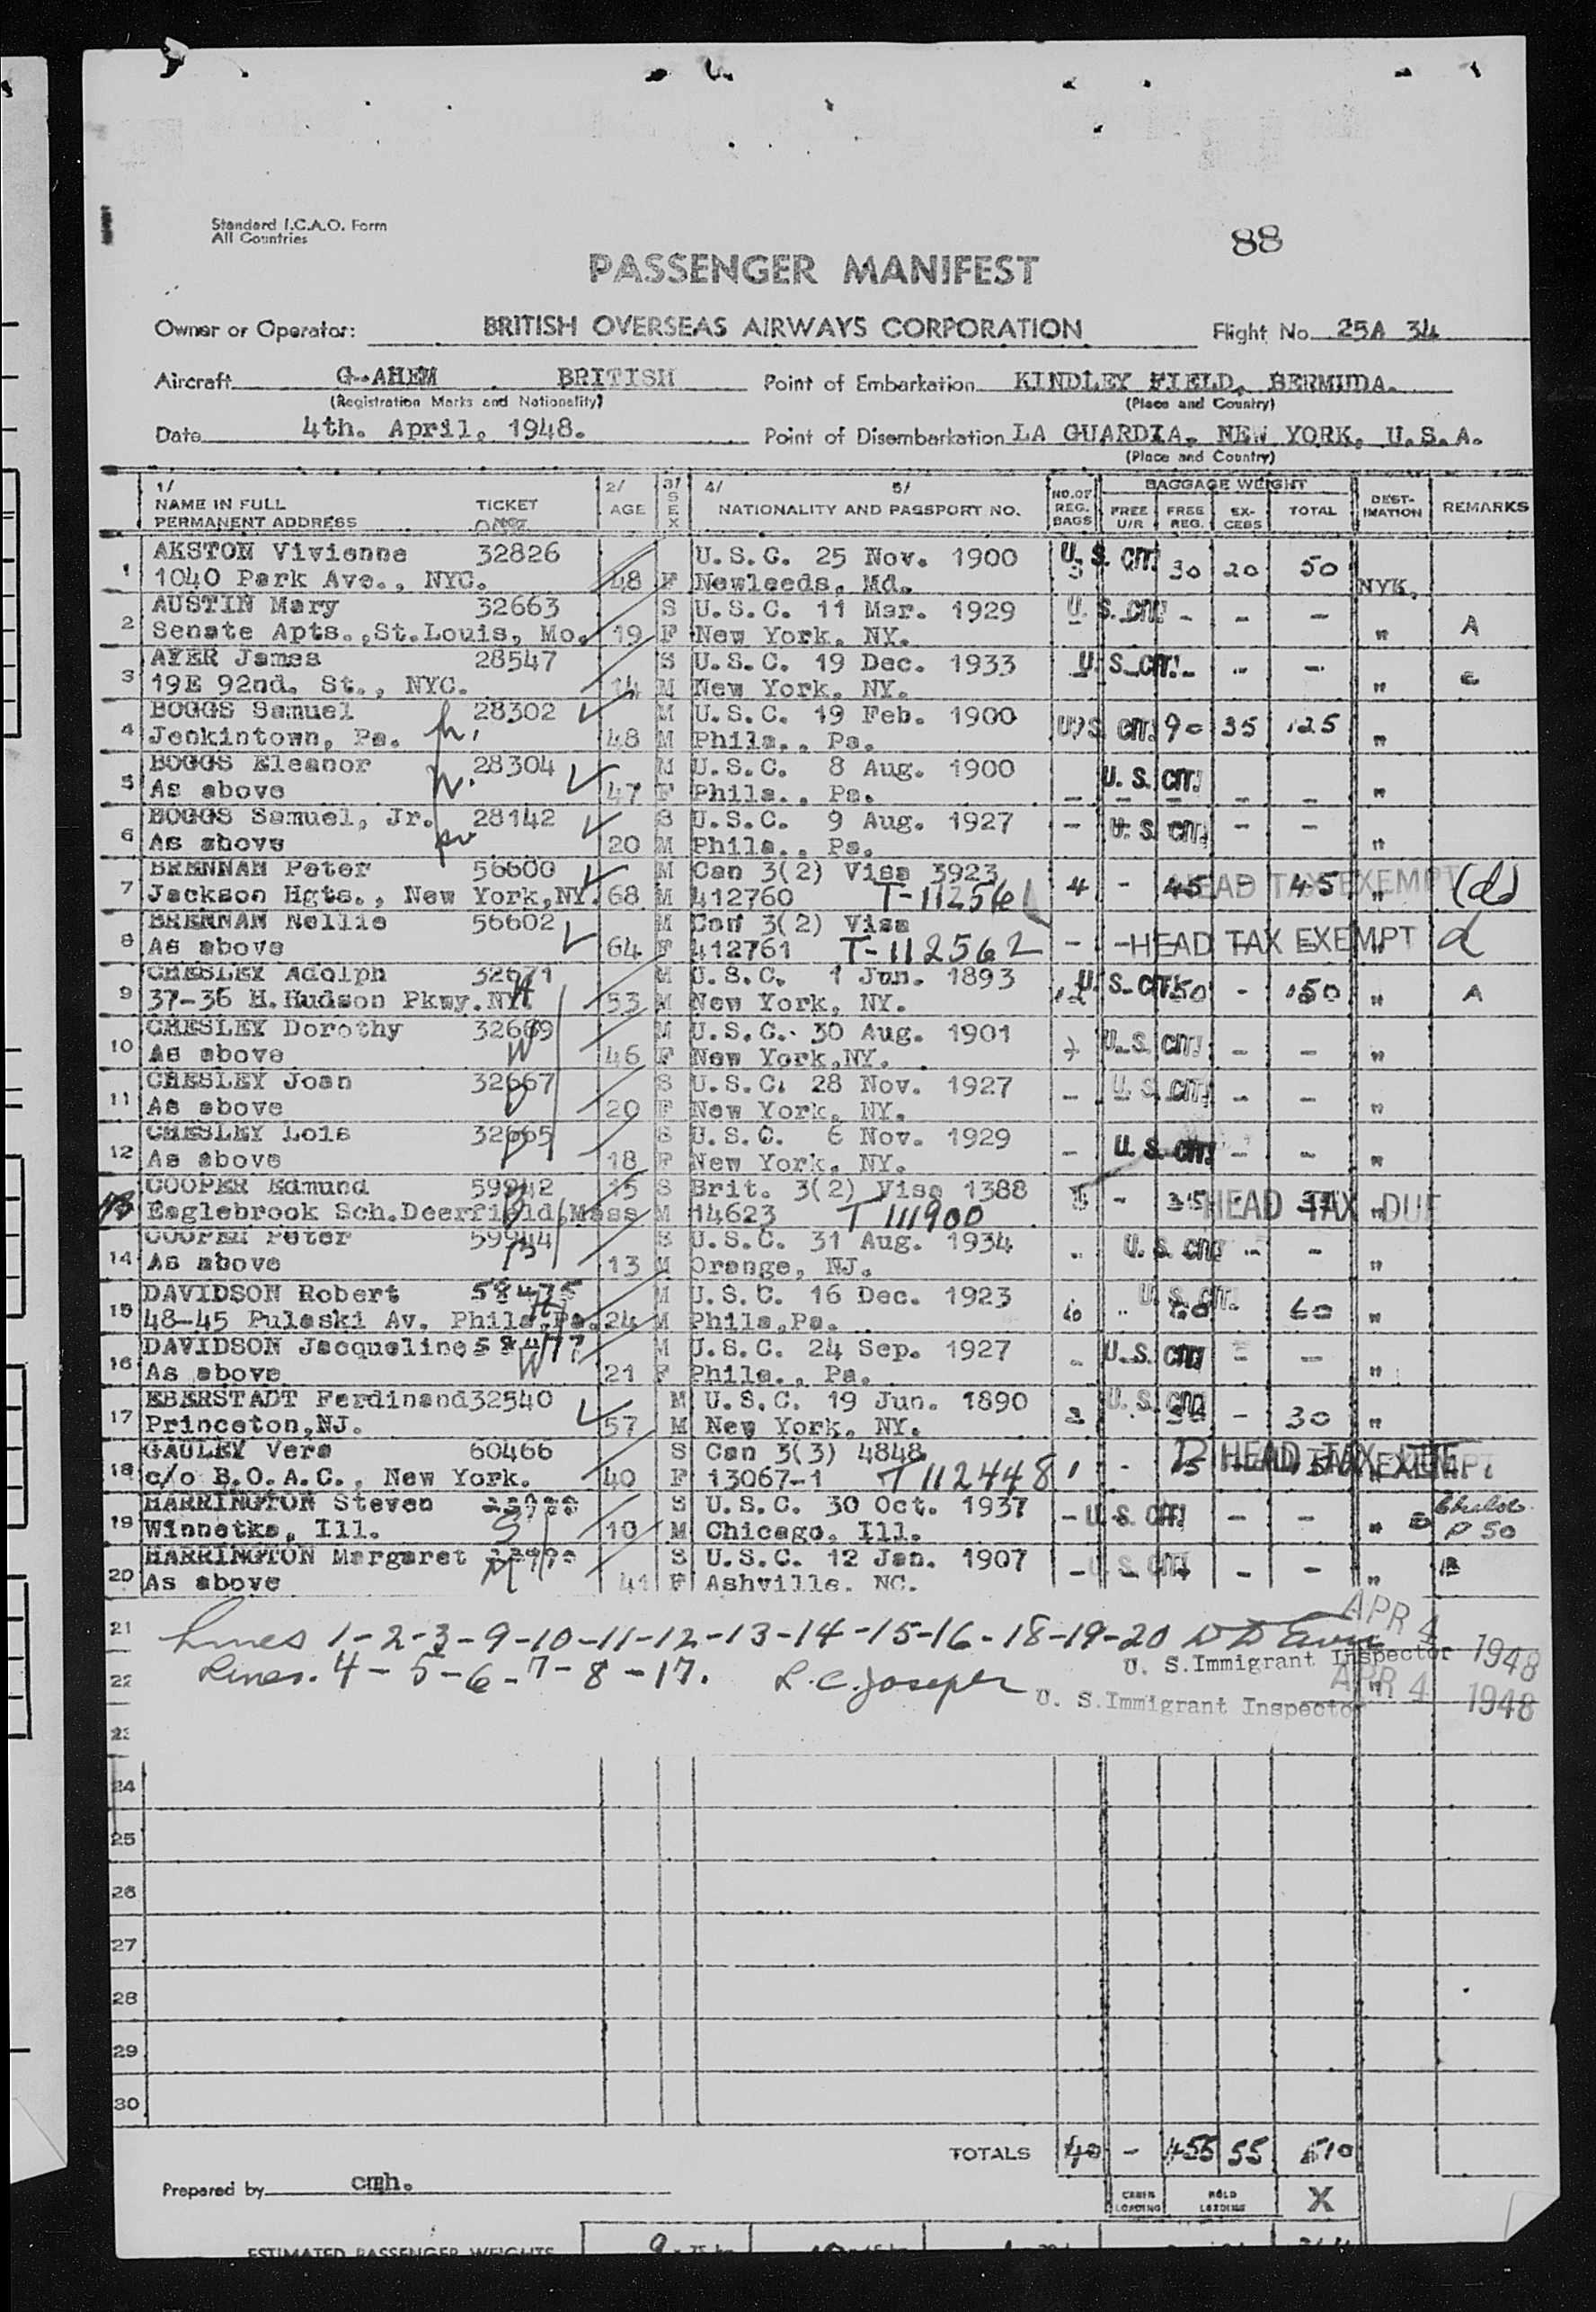 Standard I.C.A.O. Form
All Countries
88
PASSENGER MANIFEST
Owner or Operator: BRITISH OVERSEAS AIRWAYS CORPORATION Flight No. 25A 34
Aircraft G-AHEM BRITISH Point of Embarkation KINDLEY FIELD, BERMUDA.
(Registration Marks and Nationality) (Place and Country)
Date 4th. April, 1948. Point of Disembarkation LA GUARDIA, NEW YORK, U.S.A.
(Place and Country)
1/ 2/ 3/ 4/ 5/ BAGGAGE WEIGHT
NAME IN FULL TICKET AGE SEX NATIONALITY AND PASSPORT NO. NO. OF REG. BAGS FREE U/R FREE REG. EX-CESS TOTAL DEST-INATION REMARKS
PERMANENT ADDRESS
AKSTON Vivienne 32826 U.S.C. 25 Nov. 1900 U.S. CIT! 30 20 50
1 1040 Park Ave., NYC. 48 F Newleeds, Md. NYK.
AUSTIN Mary 32663 S U.S.C. 11 Mar. 1929 U.S. CIT! - - -
2 Senate Apts., St.Louis, Mo. 19 F New York, NY. " A
AYER James 28547 S U.S.C. 19 Dec. 1933 U.S. CIT! - - -
3 19E 92nd. St., NYC. 14 M New York, NY. "
BOGGS Samuel 28302 M U.S.C. 19 Feb. 1900 U.S. CIT! 90 35 125
4 Jenkintown, Pa. 48 M Phila., Pa. "
BOGGS Eleanor 28304 M U.S.C. 8 Aug. 1900 U.S. CIT!
5 As above 47 F Phila., Pa. - - - - - "
BOGGS Samuel, Jr. 28142 S U.S.C. 9 Aug. 1927 - U.S. CIT! - -
6 As above 20 M Phila., Pa. "
BRENNAN Peter 56600 M Can 3(2) Visa 3923 4 - 45 - 45 HEAD TAX EXEMPT
7 Jackson Hgts., New York,NY. 68 M 412760 T-112561 "
BRENNAN Nellie 56602 M Can 3(2) Visa
8 As above 64 F 412761 T-112562 - - HEAD TAX EXEMPT
CHESLEY Adolph 32671 M U.S.C. 1 Jun. 1893 12 U.S. CIT! 150 - 150
9 37-36 H.Hudson Pkwy.NY. 53 M New York, NY. " A
CHESLEY Dorothy 32669 M U.S.C. 30 Aug. 1901 U.S. CIT!
10 As above W 46 F New York,NY. - - "
CHESLEY Joan 32667 S U.S.C. 28 Nov. 1927 U.S. CIT!
11 As above 20 F New York, NY. - - - "
CHESLEY Lois 32665 S U.S.C. 6 Nov. 1929 U.S. CIT!
12 As above 18 F New York, NY. - - - "
COOPER Edmund 59942 15 S Brit. 3(2) Visa 1388 - 35 HEAD TAX DUE
Eaglebrook Sch.Deerfield,Mass M 14623 T 111900
COOPER Peter 59944 S U.S.C. 31 Aug. 1934 U.S. CIT! - -
14 As above 13 M Orange, NJ. "
DAVIDSON Robert 58475 M U.S.C. 16 Dec. 1923 U.S. CIT!
15 48-45 Pulaski Av. Phila.Pa. 24 M Phila,Pa. 60 60 "
DAVIDSON Jacqueline 58477 M U.S.C. 24 Sep. 1927 U.S. CIT! - -
16 As above W 21 F Phila., Pa. "
EBERSTADT Ferdinand 32540 M U.S.C. 19 Jun. 1890 U.S. CIT!
17 Princeton,NJ. 57 M New York, NY. 30 - 30 "
GAULEY Vera 60466 S Can 3(3) 4848 HEAD TAX DUE
18 c/o B.O.A.C., New York. 40 F 13067-1 T 112448 1 - 15 EXEMPT
HARRINGTON Steven S U.S.C. 30 Oct. 1937 - U.S. CIT! - -
19 Winnetka, Ill. 10 M Chicago, Ill. " P 50
HARRINGTON Margaret S U.S.C. 12 Jan. 1907 U.S. CIT!
20 As above 41 F Ashville, NC. - - - "
21 Lines 1-2-3-9-10-11-12-13-14-15-16-18-19-20 APR 4 1948
U. S. Immigrant Inspector
22 Lines. 4-5-6-7-8-17. L.C. Joseph APR 4 1948
U. S. Immigrant Inspector
23
24
25
26
27
28
29
30
TOTALS 40 - 455 55 510
Prepared by cmh. CABIN LOADING HOLD LOADING X
ESTIMATED PASSENGER WEIGHTS